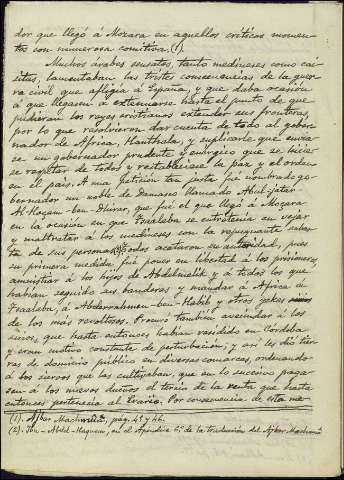 dor que llegó á Mozara en aquellos críticos momen-
tos con numerosa comitiva. (1).
Muchos árabes sensatos, tanto medineses como cai-
sitas, lamentaban las tristes consecuencias de la gue-
rra civil que afligía á España, y que daba ocasión
á que llegasen á extenuarse hasta el punto de que
pudieran los reyes cristianos extender sus fronteras,
por lo que resolvieron dar cuenta de todo al gober-
nador de Africa, Hanthala, y suplicarle que envia-
se un gobernador prudente y enérgico que se hiciese
se respetar de todos y restableciese la paz y el orden
en el país. A una petición tan justa fué nombrado go-
bernador un noble de Damasco llamado Abul-jatar
Al-Hozam-ben-Dhirar, que fué el que llegó á Mozara
en la ocasión en que Tsaalaba se entretenía en vejar
y maltratar á los medineses con la repugnante subas-
ta de sus personas. Todos acataron su autoridad, pues
su primera medida fué poner en libertad á los prisioneros,
amnistiar á los hijos de Abdelmelik y á todos los que
habían seguido sus banderas y mandar á Africa á
Tsaalaba, á Abderrahmen-ben-Habib y otros jefes
de los más revoltosos. Procuró también avecindar á los
sirios, que hasta entonces habían residido en Córdoba
y eran motivo constante de perturbación; y así les dió tier-
ras de dominio público en diversas comarcas, ordenando
á los siervos que las cultivaban, que en lo sucesivo paga-
sen á los nuevos dueños el tercio de la renta que hasta
entonces pertenecía al Erario. Por consecuencia de esta me-
(1). Ajbar Machmuâ, pág. 49 y 46.
(2). Ibn-Abdel-Haquem, en el Apéndice 6º de la traducción del Ajbar Machmuâ